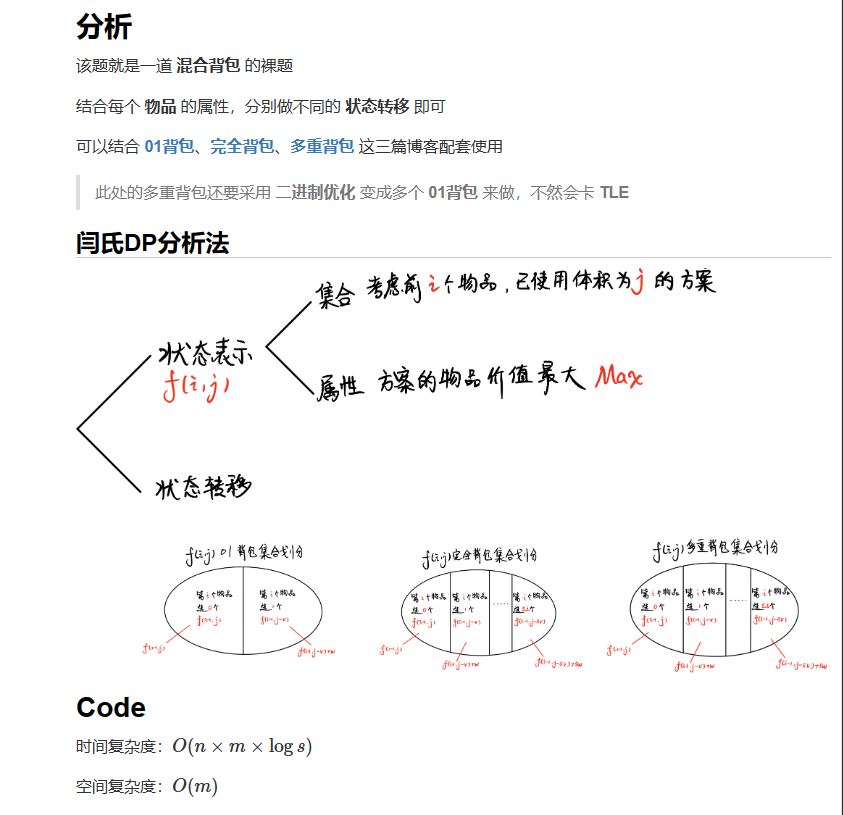 分析
该题就是一道 混合背包 的裸题
结合每个 物品 的属性，分别做不同的 状态转移 即可
可以结合 01背包、完全背包、多重背包 这三篇博客配套使用
此处的多重背包还要采用 二进制优化 变成多个 01背包 来做，不然会卡 TLE
闫氏DP分析法
集合 考虑前i个物品，已使用体积为j的方案
状态表示
f(i,j)
属性 方案的物品价值最大 Max
状态转移
f(i,j) 01背包集合划分
第i个物品
选0个
f(i-1,j)
第i个物品
选1个
f(i-1,j-v)
f(i-1,j)
f(i-1,j-v)+w
f(i,j)完全背包集合划分
第i个物品
选0个
f(i-1,j)
第i个物品
选1个
f(i-1,j-v)
......
第i个物品
f(i-1,j-sv)
f(i-1,j)
f(i-1,j-v)+w
f(i-1,j-sv)+sw
f(i,j)多重背包集合划分
第i个物品
选0个
f(i-1,j)
第i个物品
选1个
f(i-1,j-v)
......
第i个物品
f(i-1,j-sv)
f(i-1,j)
f(i-1,j-v)+w
f(i-1,j-sv)+sw
Code
时间复杂度：O(n × m × log s)
空间复杂度：O(m)